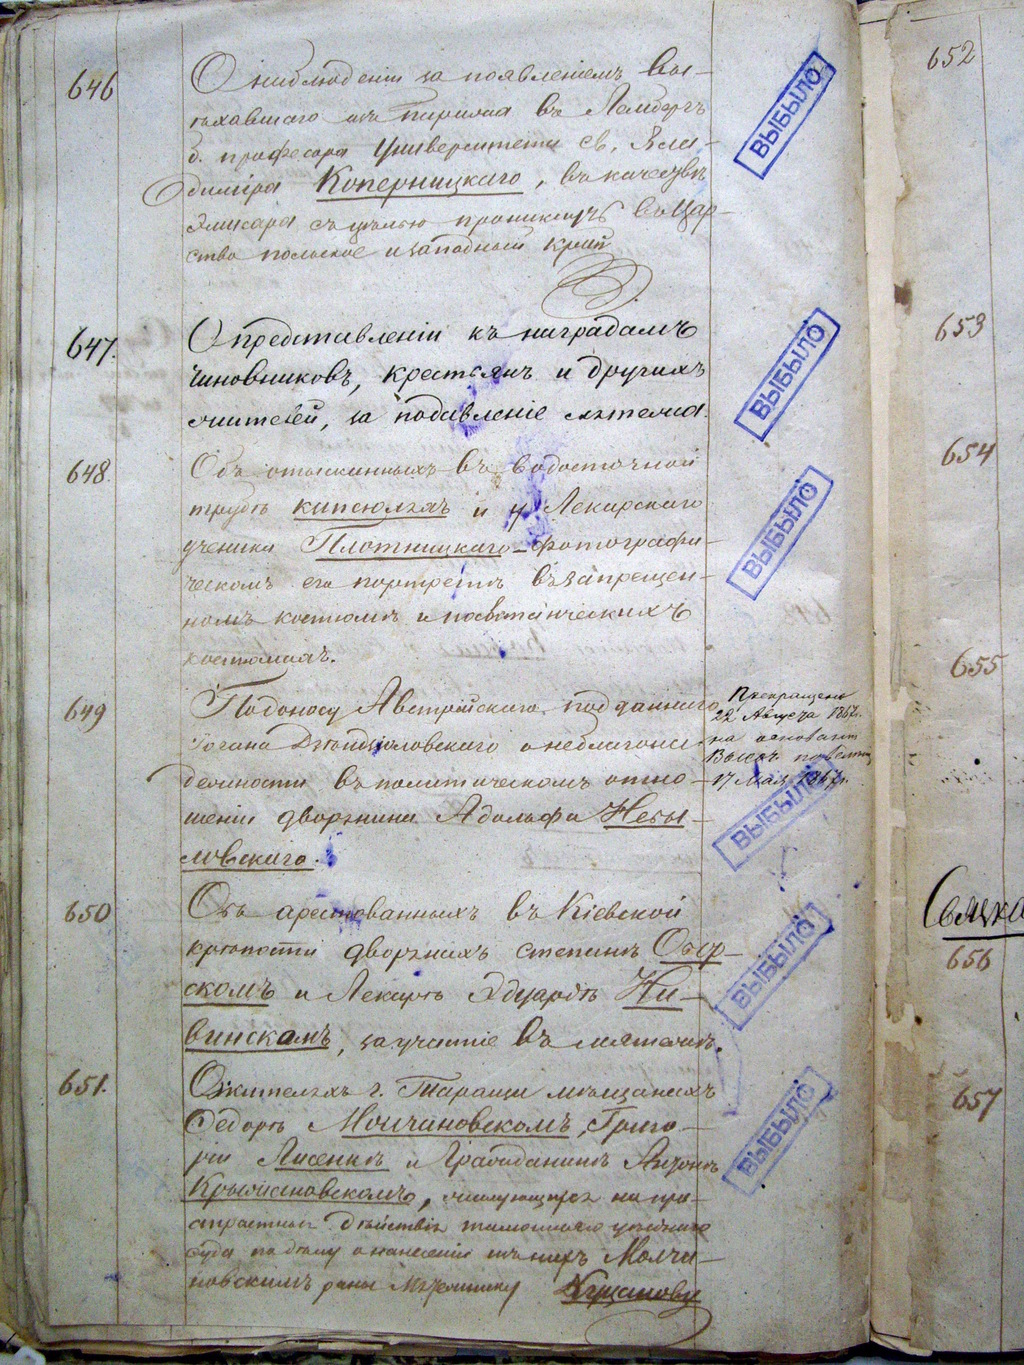 646
О наблюденіи за появленіемъ вы-
ѣхавшаго изъ Парижа въ Лембергъ
б. професора Университета Св. Вла-
диміра Коперницкаго, въ качествѣ
эмисара съ цѣлью проникнуть въ Цар-
ство польское и западный край
ВЫБЫЛО
647.
О представленіи къ наградамъ
чиновниковъ, крестьянъ и другихъ
жителей, за подавленіе мятежа.
ВЫБЫЛО
648.
Объ отысканныхъ въ водосточной
трубѣ капсюляхъ и у Лекарскаго
ученика Плотницкаго фотографи-
ческомъ его портретѣ въ запрещен-
номъ костюмѣ и повстанческихъ
костюмахъ.
ВЫБЫЛО
649
По доносу Австрійскаго подданнаго
Іогана о неблагона-
дежности въ политическомъ отно-
шеніи дворянина Адольфа Небы-
ловскаго.
Прекращено
22 Августа 1867г.
на основаніи
Высоч. повелѣн.
17 Мая 1867г.
ВЫБЫЛО
650
Объ арестованныхъ въ Кіевской
крѣпости дворянахъ Степанѣ
скомъ и Лекарѣ Эдуардѣ Ни-
винскомъ, за участіе въ мятежѣ.
ВЫБЫЛО
651.
О жителяхъ г. Таращи мѣщанахъ
Федорѣ Молчановскомъ, Григо-
ріи Лисенкѣ и Гражданинѣ Антонѣ
Крыжановскомъ, жалующихся на при-
страстныя дѣйствія тамошняго уѣзднаго
суда по дѣлу о нанесеніи изъ нихъ Молча-
новскимъ раны
ВЫБЫЛО
652
653
654
655
656
657